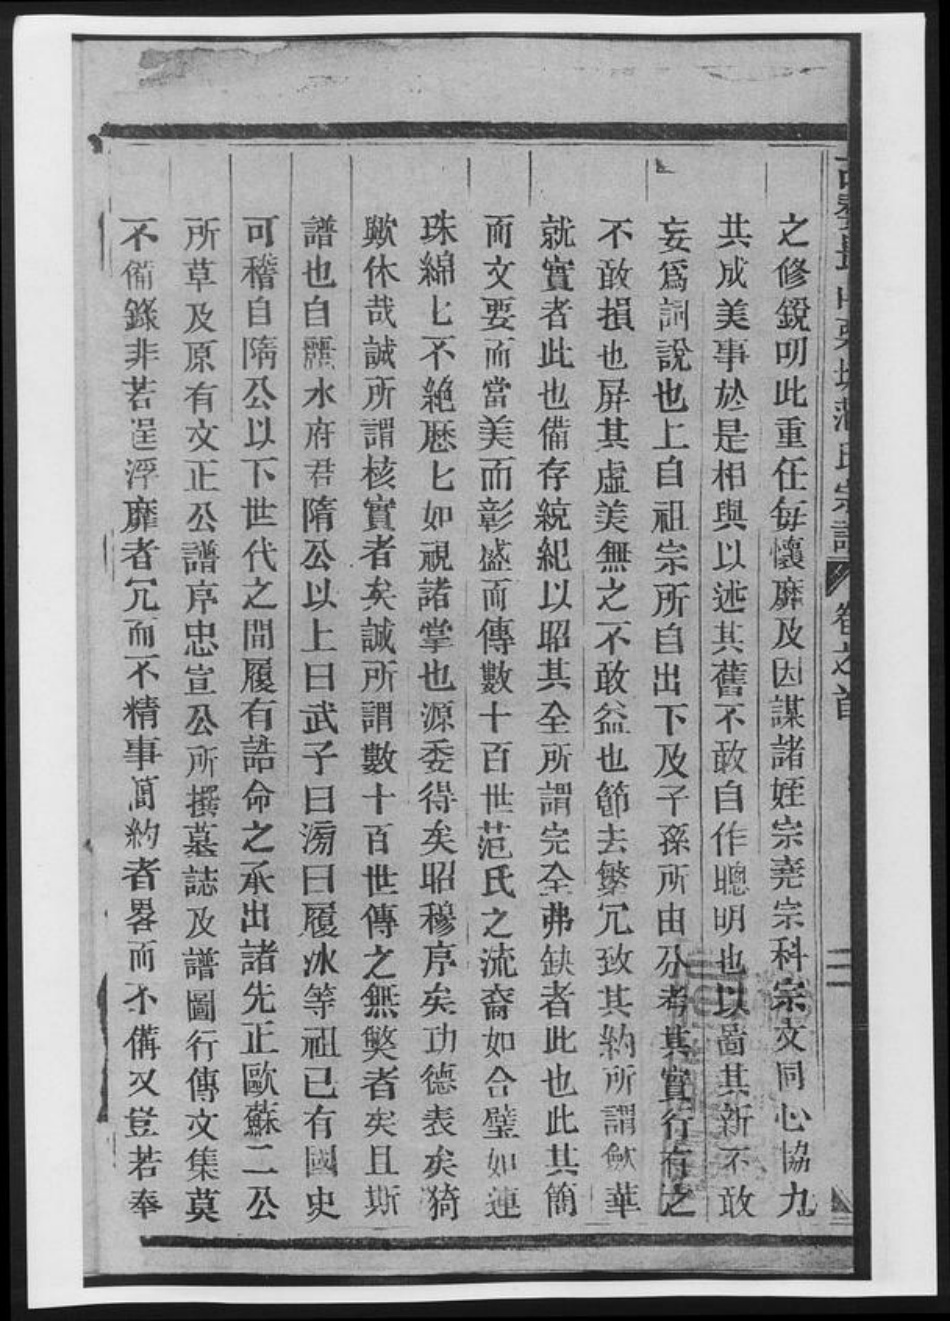 宗譜 卷之首
二
之修銳明此重任每懷靡及因謀諸姪宗堯宗科宗文同心協九
共成美事於是相與以述其舊不敢自作聰明也以啚其新不敢
妄爲詞說也上自祖宗所自出下及子孫所由分考其實行有之
不敢損也屏其虛美無之不敢益也節去繁冗致其約所謂歛華
就實者此也備存統紀以昭其全所謂完全弗缺者此也此其簡
而文要而當美而彰盛而傳數十百世范氏之流裔如合璧如連
珠綿匕不絶歷匕如視諸掌也源委得矣昭穆序矣功德表矣猗
歟休哉誠所謂核實者矣誠所謂數十百世傳之無斁者矣且斯
譜也自麗水府君隋公以上曰武子曰滂曰履冰等祖已有國史
可稽自隋公以下世代之間履有誥命之承出諸先正歐蘇二公
所草及原有文正公譜序忠宣公所撰墓誌及譜圖行傳文集莫
不備錄非若逞浮靡者冗而不精事簡約者畧而不備又豈若奉